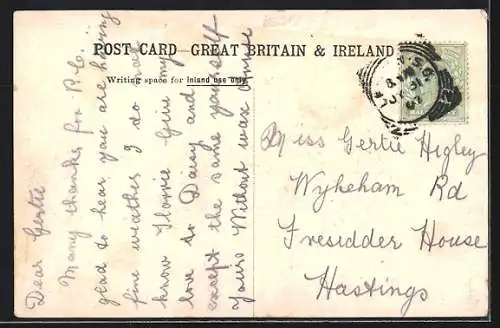 POST CARD—GREAT BRITAIN & IRELAND
Writing space for Inland use only.
Dear Gertie
Many thanks for P.C.
glad to hear you are having
fine weather I do not
know Florrie Give my
love to Daisy and
except the same yourself
Yours Without
Miss Gertie Higley
Wykeham Rd
Tresidder House
Hastings